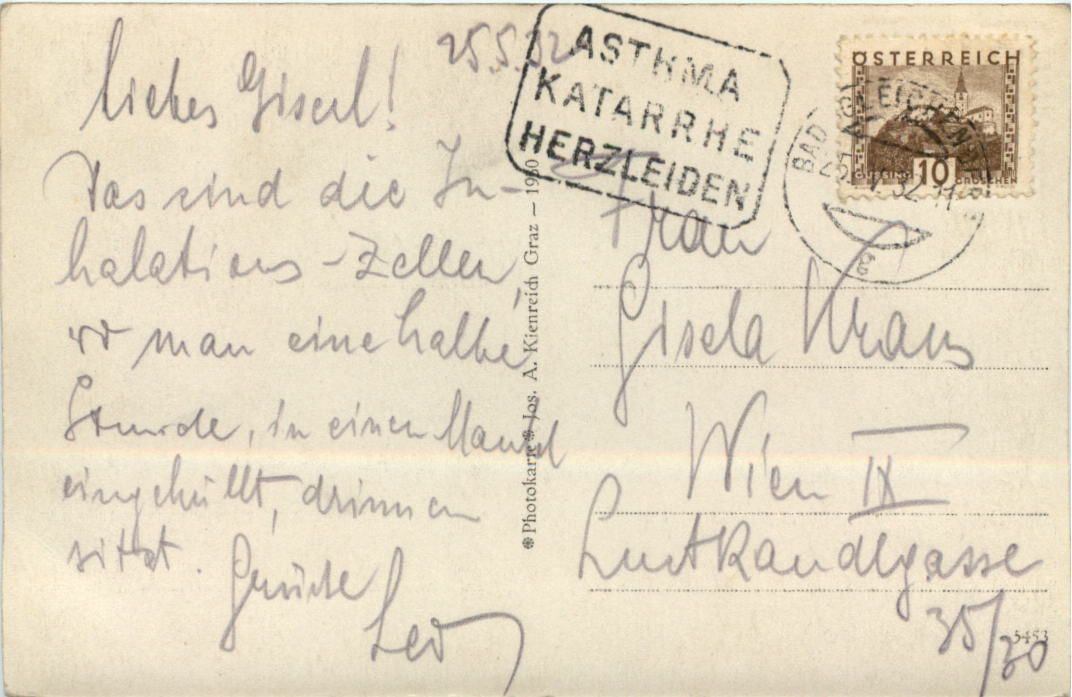 25.5.32
liebes Giserl!
Das sind die In-
halations-Zellen,
wo man eine halbe
Stunde, in einen Mantel
eingehüllt, drinnen
sitzt. Grüsse
Leo
❋ Photokarte ❋ Jos. A. Kienreich Graz – 1930
ASTHMA
KATARRHE
HERZLEIDEN
ÖSTERREICH
GÜSSING 10 GROSCHEN
BAD GLEICHENBERG
Frau
Gisela Kraus
Wien IX
Lustkandlgasse
35/30
5453